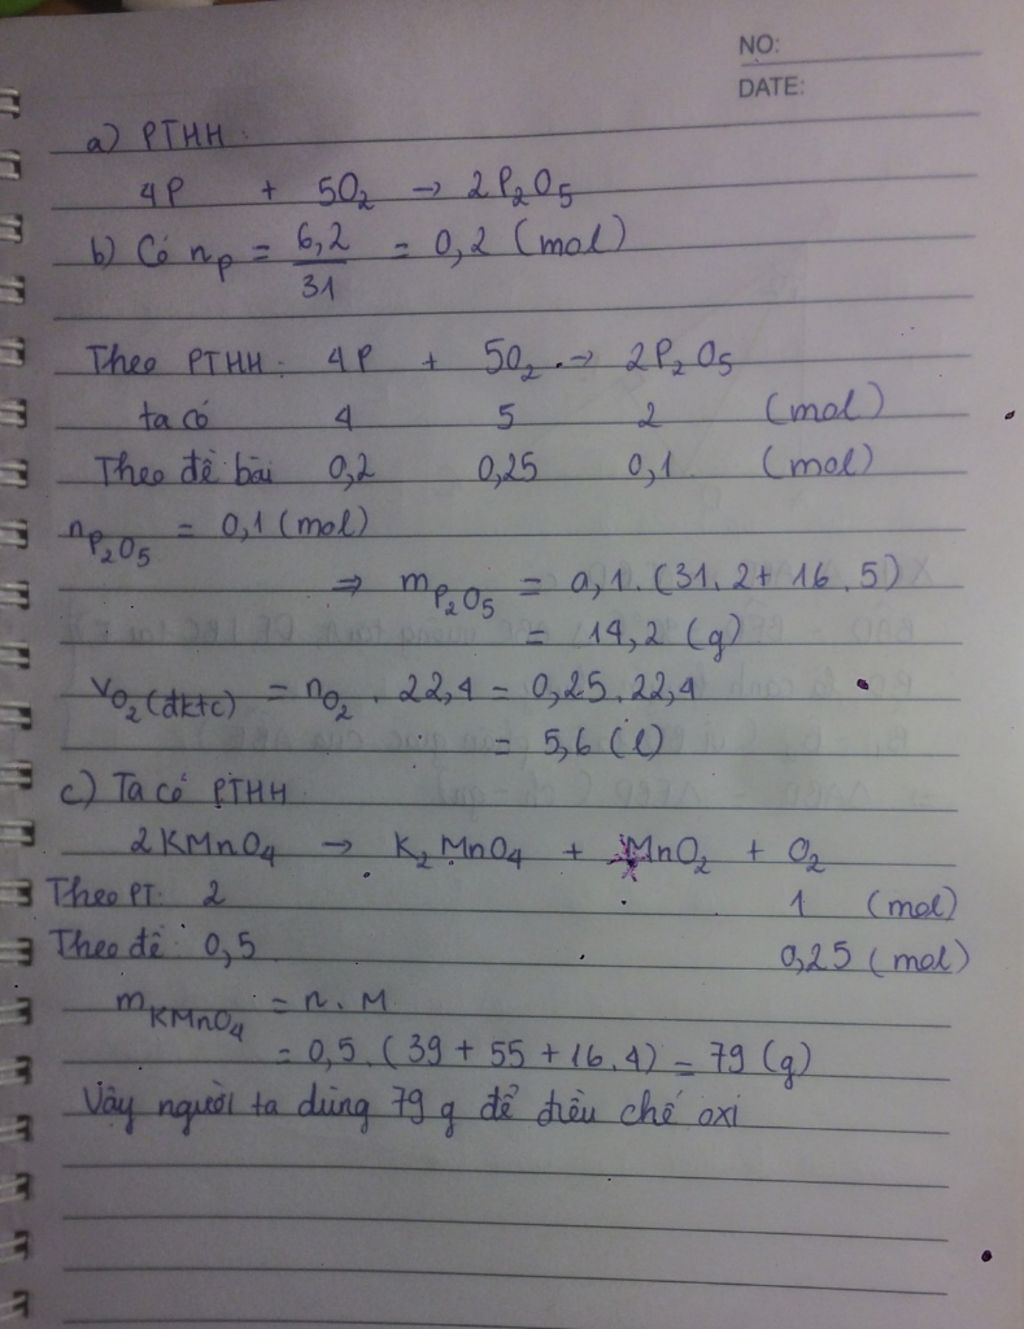 NO:
DATE:
a) PTHH:
4P + 5O₂ → 2P₂O₅
b) Có nₚ = 6,2/31 = 0,2 (mol)
Theo PTHH: 4P + 5O₂ → 2P₂O₅
ta có 4 5 2 (mol)
Theo đề bài 0,2 0,25 0,1 (mol)
n P₂O₅ = 0,1 (mol)
⇒ m P₂O₅ = 0,1.(31.2+ 16.5)
= 14,2 (g)
V O₂ (đktc) = n O₂ . 22,4 = 0,25.22,4
= 5,6 (l)
c) Ta có PTHH
2KMnO₄ → K₂MnO₄ + MnO₂ + O₂
Theo PT: 2 1 (mol)
Theo đề: 0,5 0,25 (mol)
m KMnO₄ = n.M
= 0,5.(39 + 55 +16.4) = 79 (g)
Vậy người ta dùng 79 g để điều chế oxi